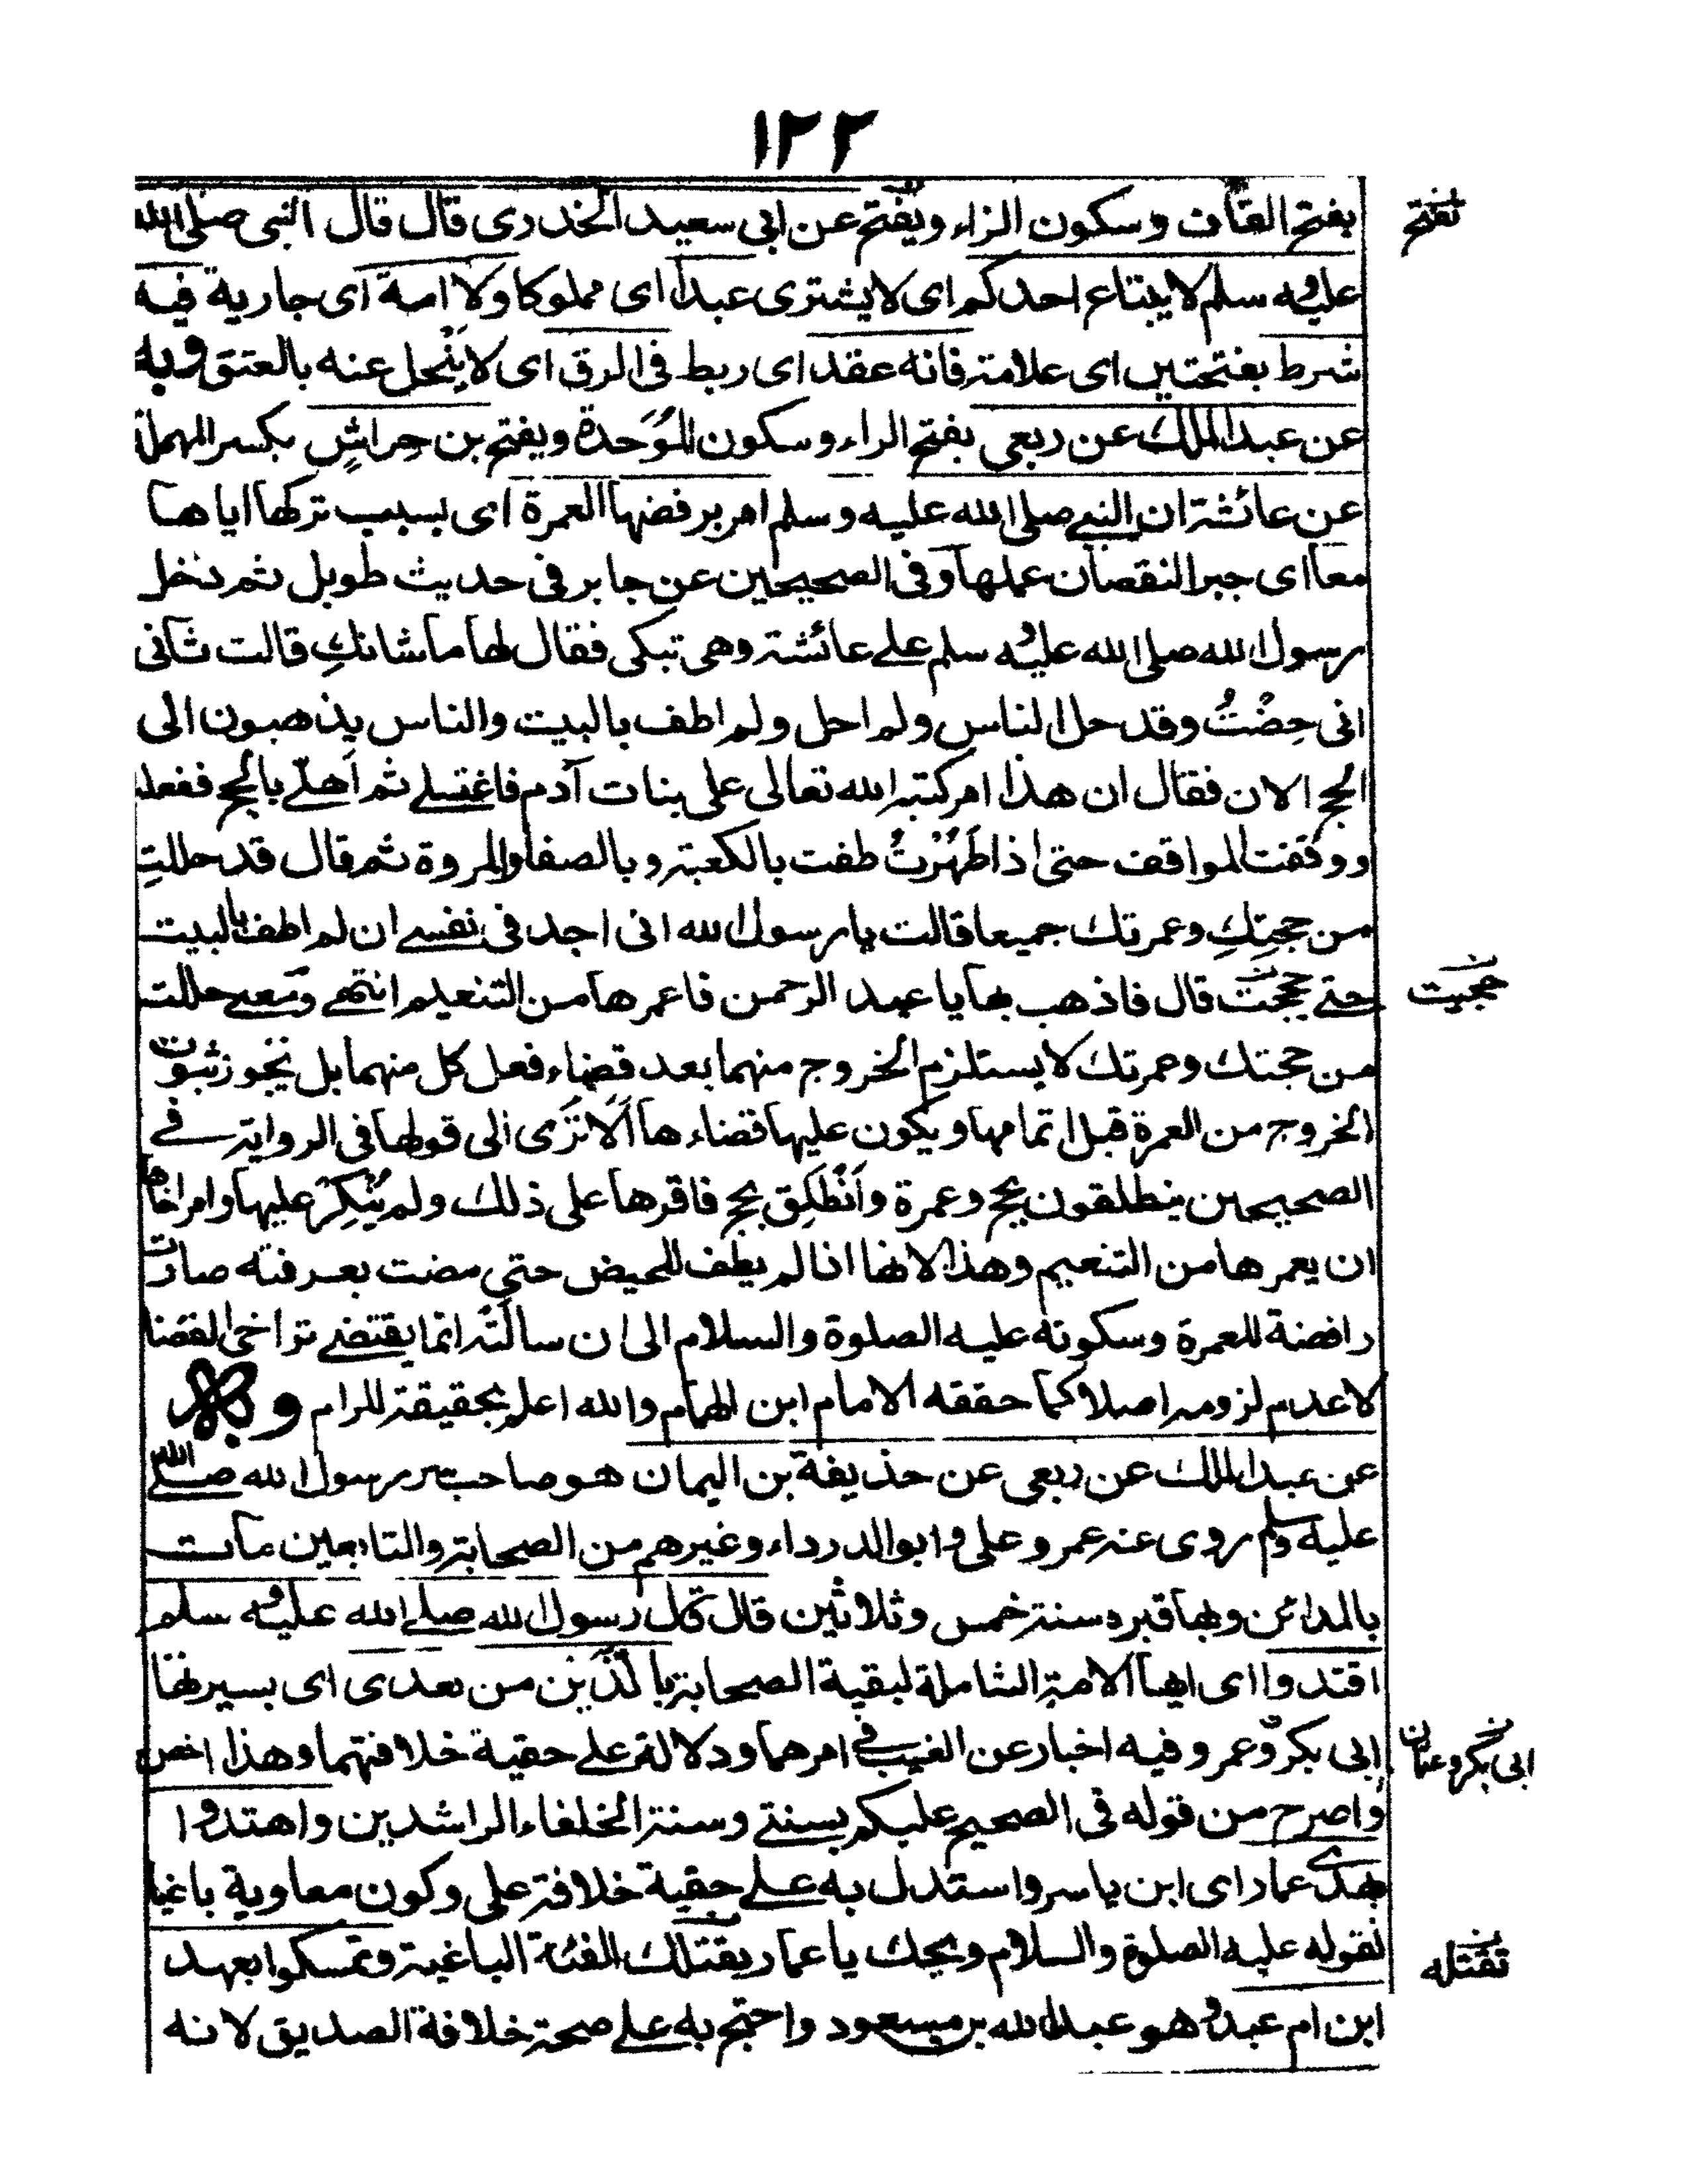 ١٢٢
بفتح القاف وسكون الزاء ويفتح عن ابى سعيد الخدرى قال قال النبى صلى الله
تفتح
عليه وسلم لا يبتاع احدكم اى لا يشترى عبدا اى مملوكا ولا امة اى جارية فيه
شرط بفتحتين اى علامة فانه عقد اى ربط فى الرق اى لا ينحل عنه بالعتق وبه
عن عبد الملك عن ربعى بفتح الراء وسكون الموحدة ويفتح بن حراش بكسر المهملة
عن عائشة ان النبى صلى الله عليه وسلم امر برفضها العمرة اى بسبب تركها اياها
معا اى جبرا لنقصان عملها وفى الصحيحين عن جابر فى حديث طويل ثم دخل
رسول الله صلى الله عليه وسلم على عائشة وهى تبكى فقال لها ما شانكِ قالت شانى
انى حِضْتُ وقد حل الناس ولم احل ولم اطف بالبيت والناس يذهبون الى
الحج الان فقال ان هذا امر كتبه الله تعالى على بنات آدم فاغتسلى ثم اَهلّى بالحج ففعلت
ووقفت المواقف حتى اذا طَهُرَتْ طفت بالكعبة وبالصفا والمروة ثم قال قد حللتِ
من حجتِكِ وعمرتك جميعا قالت يا رسول الله انى اجد فى نفسى ان لم اطف بالبيت
حتى حججت قال فاذهب بها يا عبد الرحمن فاعمرها من التنعيم انتهى ومعنى حللت
حججت
من حجتك وعمرتك لا يستلزم الخروج منهما بعد قضاء فعل كل منهما بل يجوز ثبوت
الخروج من العمرة قبل اتمامها ويكون عليها قضاءها اَلَا تَرَى الى قولها فى الرواية فى
الصحيحين ينطلقون بحج وعمرة واَنْطَلِق بحج فاقرها على ذلك ولم يُنْكِرْ عليها وامر اخاها
ان يعمرها من التنعيم وهذا لانها اذا لم يطف للحيض حتى مضت بعرفة صارت
رافضة للعمرة وسكوته عليه الصلوة والسلام الى ان سالَتْه انما يقتضى تراخى القضا
لا عدم لزومه اصلا كما حققه الامام ابن الهمام والله اعلم بحقيقة المرام وبه
عن عبد الملك عن ربعى عن حذيفة بن اليمان هو صاحب سر رسول الله صلى الله
عليه وسلم روى عنه عمر وعلى وابو الدرداء وغيرهم من الصحابة والتابعين مات
بالمدائن وبها قبره سنة خمس وثلاثين قال قال رسول الله صلى الله عليه وسلم
اقتدوا اى ايها الامة الشاملة لبقية الصحابة بالَّذَيْن من بعدى اى بسيرتها
ابى بكر وعمر وفيه اخبار عن الغيب فى امرهما ودلالة على حقية خلافتهما وهذا اخص
ابى بكر وعثمان
واصرح من قوله فى الصحيح عليكم بسنتى وسنة الخلفاء الراشدين واهتدوا
بهدى عمار اى ابن ياسر واستدل به على حقية خلافة على وكون معاوية باغيا
لقوله عليه الصلوة والسلام ويحك يا عمار يقتلك الفئة الباغية وتمسكوا بعهد
تقتله
ابن ام عبد وهو عبد الله بن مسعود واحتج به على صحة خلافة الصديق لانه